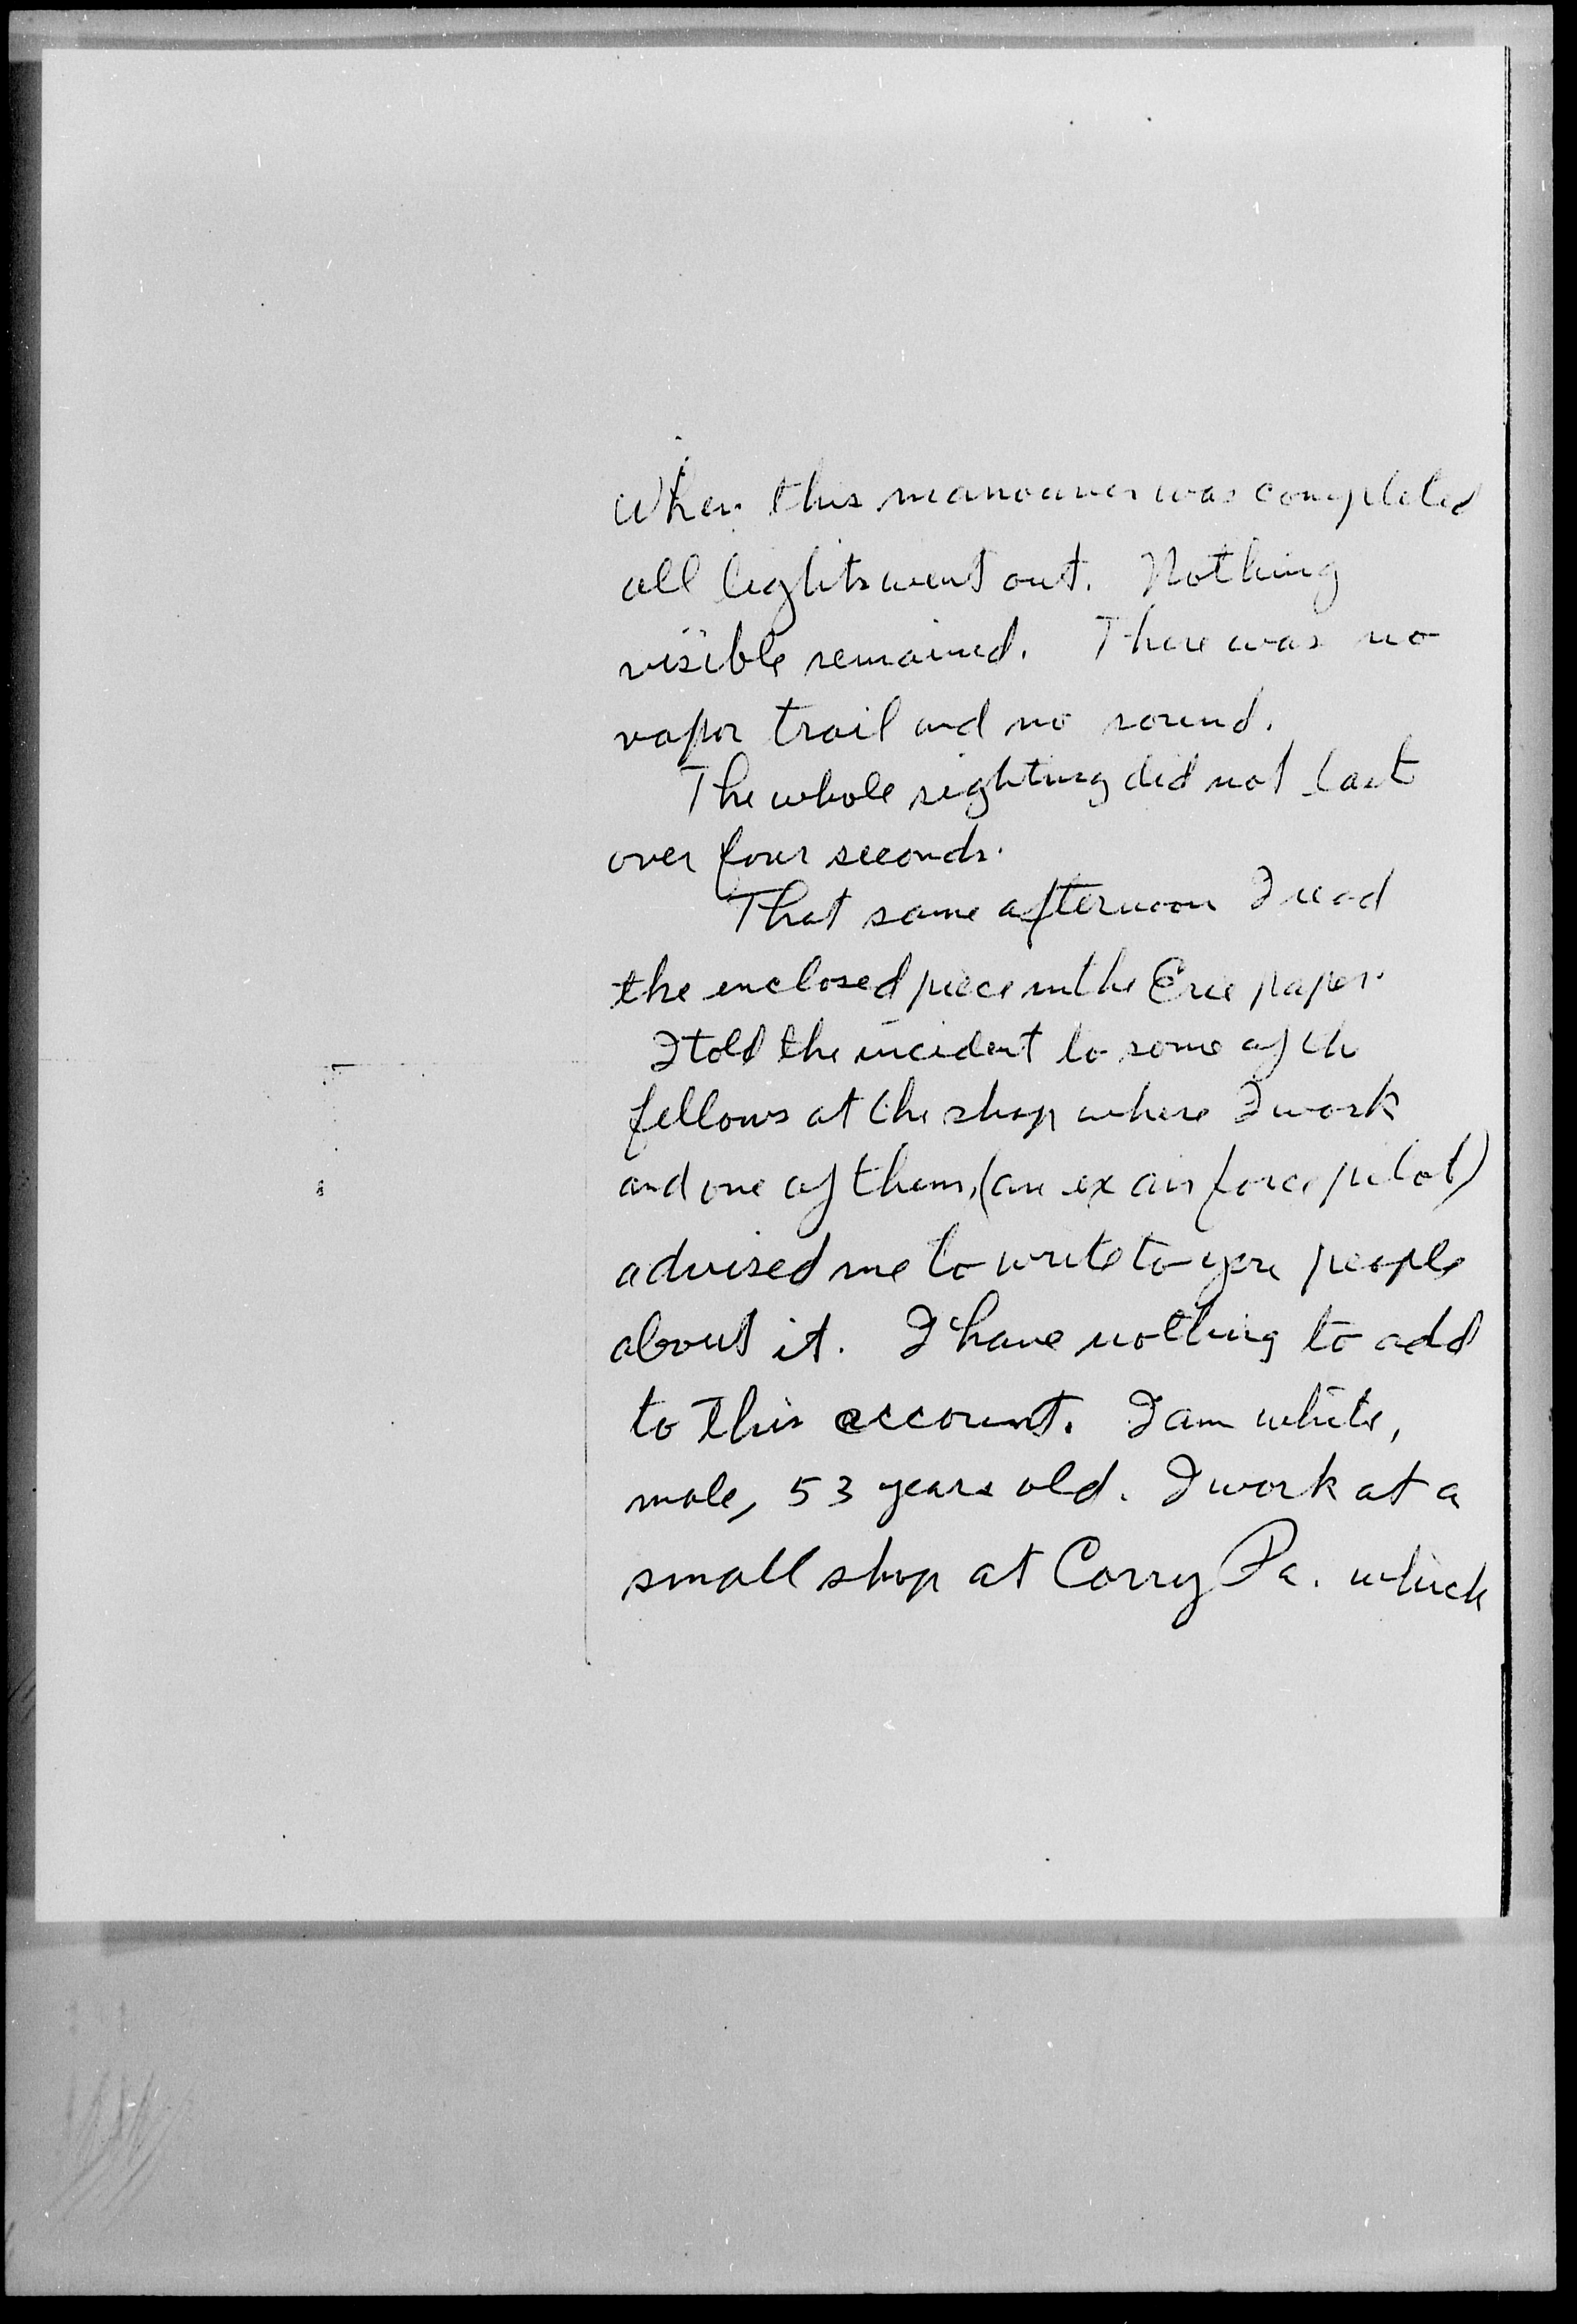 When this manouver was completed
all lights went out. Nothing
visible remained. There was no
vapor trail and no sound.
The whole sighting did not last
over four seconds.
That same afternoon I read
the enclosed piece in the Erie paper.
I told the incident to some of the
fellows at the shop where I work
and one of them, (an ex air force pilot)
advised me to write to you people
about it. I have nothing to add
to this account. I am white,
male, 53 years old. I work at a
small shop at Corry Pa. which